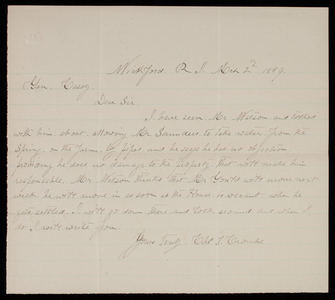 Wickford R. I. Mch 2nd 1889.
Gen. Casey
Dear Sir
I have seen Mr Watson and talked
with him about allowing Mr Saunders to take water from the
Spring on the farm, by pipes and he says he has no objection
providing he does no damage to the property that will make him
responsible. Mr Watson thinks that Mr will move next
week he will move in as soon as the House is vacant when he
gets settled, I will go down there and look around and when I
do I will write you
Yours Truly